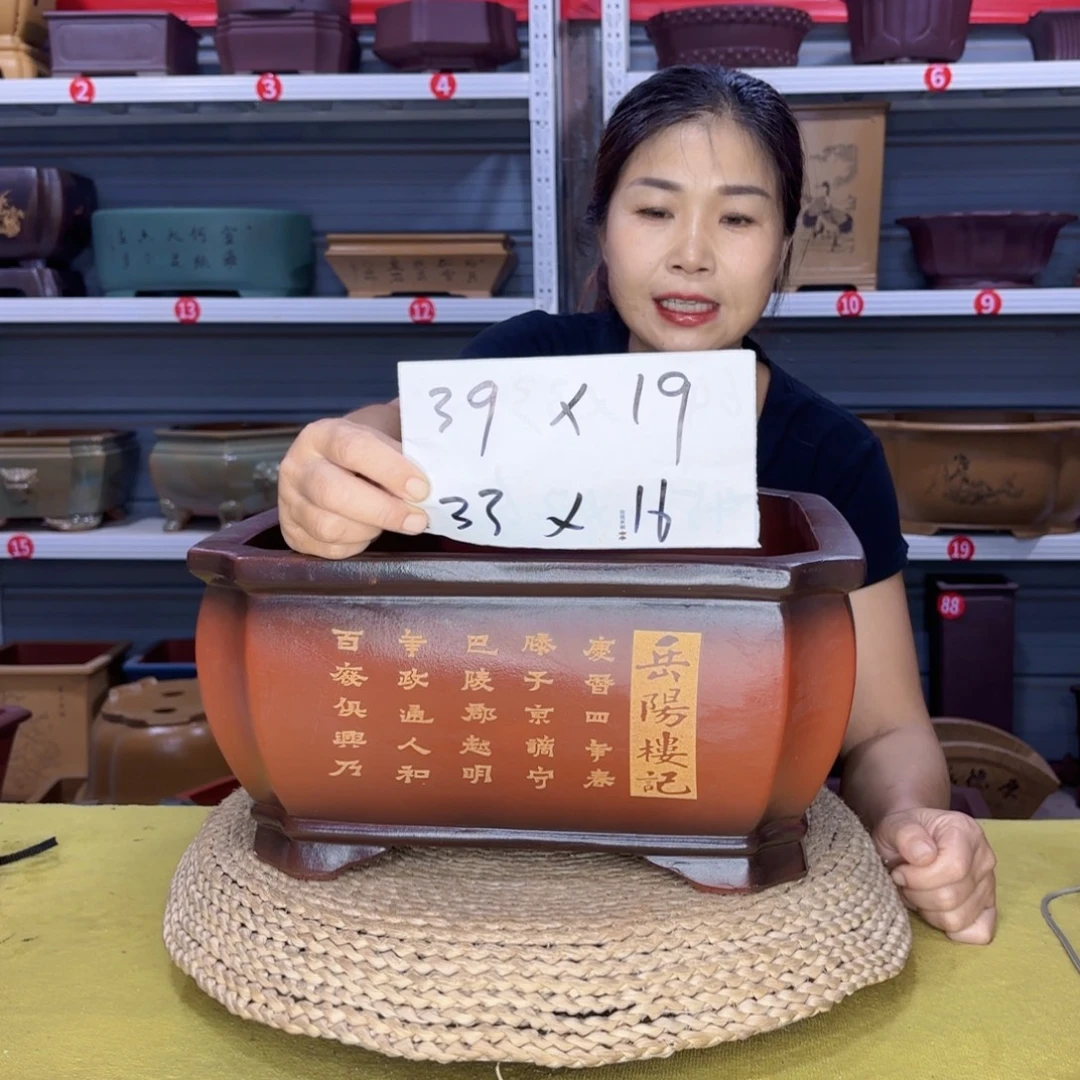 2
3
4
6
13
12
10
9
39 x 19
33 x 16
15
19
88
岳陽樓記
慶曆四年春
滕子京謫守
巴陵郡越明
年政通人和
百廢俱興乃